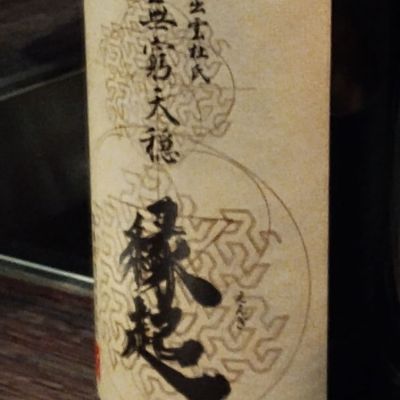 出雲杜氏
無窮天穏
縁起
えんぎ